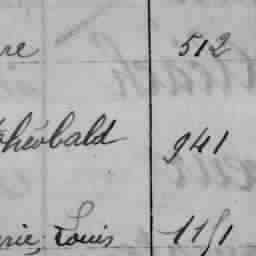 re 512
Théobald 941
rie, Louis 1151